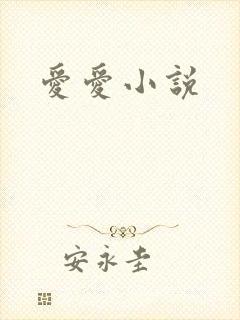 愛愛小說
安永圭